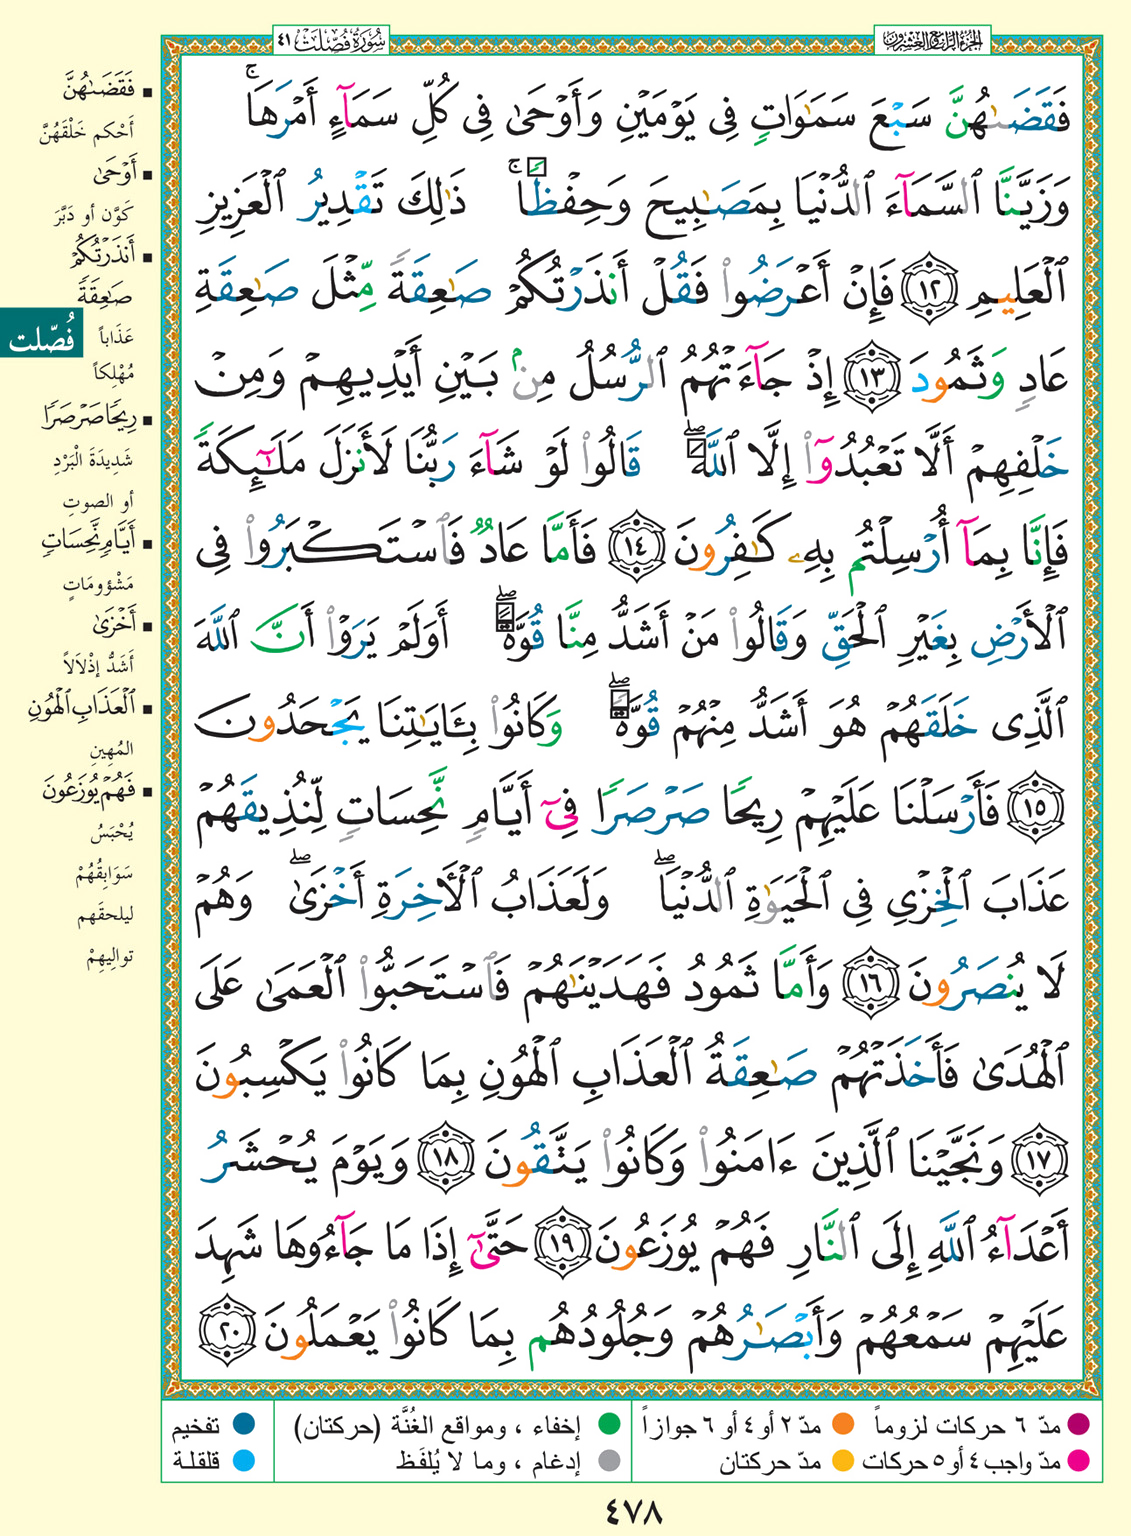 الجزء الرابع والعشرون
سُورَةُ فُصِّلَتْ ٤١
فَقَضَىٰهُنَّ سَبْعَ سَمَٰوَاتٍ فِى يَوْمَيْنِ وَأَوْحَىٰ فِى كُلِّ سَمَآءٍ أَمْرَهَا ۚ
وَزَيَّنَّا ٱلسَّمَآءَ ٱلدُّنْيَا بِمَصَٰبِيحَ وَحِفْظًا ۚ ذَٰلِكَ تَقْدِيرُ ٱلْعَزِيزِ
ٱلْعَلِيمِ ١٢ فَإِنْ أَعْرَضُوا۟ فَقُلْ أَنذَرْتُكُمْ صَٰعِقَةً مِّثْلَ صَٰعِقَةِ
عَادٍ وَثَمُودَ ١٣ إِذْ جَآءَتْهُمُ ٱلرُّسُلُ مِنۢ بَيْنِ أَيْدِيهِمْ وَمِنْ
خَلْفِهِمْ أَلَّا تَعْبُدُوٓا۟ إِلَّا ٱللَّهَ ۖ قَالُوا۟ لَوْ شَآءَ رَبُّنَا لَأَنزَلَ مَلَٰٓئِكَةً
فَإِنَّا بِمَآ أُرْسِلْتُم بِهِۦ كَٰفِرُونَ ١٤ فَأَمَّا عَادٌ فَٱسْتَكْبَرُوا۟ فِى
ٱلْأَرْضِ بِغَيْرِ ٱلْحَقِّ وَقَالُوا۟ مَنْ أَشَدُّ مِنَّا قُوَّةً ۖ أَوَلَمْ يَرَوْا۟ أَنَّ ٱللَّهَ
ٱلَّذِى خَلَقَهُمْ هُوَ أَشَدُّ مِنْهُمْ قُوَّةً ۖ وَكَانُوا۟ بِـَٔايَٰتِنَا يَجْحَدُونَ
١٥ فَأَرْسَلْنَا عَلَيْهِمْ رِيحًا صَرْصَرًا فِىٓ أَيَّامٍ نَّحِسَاتٍ لِّنُذِيقَهُمْ
عَذَابَ ٱلْخِزْىِ فِى ٱلْحَيَوٰةِ ٱلدُّنْيَا ۖ وَلَعَذَابُ ٱلْأَخِرَةِ أَخْزَىٰ ۖ وَهُمْ
لَا يُنصَرُونَ ١٦ وَأَمَّا ثَمُودُ فَهَدَيْنَٰهُمْ فَٱسْتَحَبُّوا۟ ٱلْعَمَىٰ عَلَى
ٱلْهُدَىٰ فَأَخَذَتْهُمْ صَٰعِقَةُ ٱلْعَذَابِ ٱلْهُونِ بِمَا كَانُوا۟ يَكْسِبُونَ
١٧ وَنَجَّيْنَا ٱلَّذِينَ ءَامَنُوا۟ وَكَانُوا۟ يَتَّقُونَ ١٨ وَيَوْمَ يُحْشَرُ
أَعْدَآءُ ٱللَّهِ إِلَى ٱلنَّارِ فَهُمْ يُوزَعُونَ ١٩ حَتَّىٰٓ إِذَا مَا جَآءُوهَا شَهِدَ
عَلَيْهِمْ سَمْعُهُمْ وَأَبْصَٰرُهُمْ وَجُلُودُهُم بِمَا كَانُوا۟ يَعْمَلُونَ ٢٠
فَقَضَىٰهُنَّ
أَحْكم خَلْقَهُنَّ
أَوْحَىٰ
كَوَّن أو دَبَّرَ
أَنذَرْتُكُمْ
صَٰعِقَةً
عَذَاباً
مُهْلِكاً
رِيحًا صَرْصَرًا
شَدِيدَةَ الْبَرْدِ
أو الصوتِ
أَيَّامٍ نَّحِسَاتٍ
مَشْؤومَاتٍ
أَخْزَىٰ
أَشَدُّ إذْلالاً
ٱلْعَذَابِ ٱلْهُونِ
المُهِينِ
فَهُمْ يُوزَعُونَ
يُحْبَسُ
سَوَابِقُهُمْ
ليلحقَهم
توالِيهِمْ
فُصّلت
مدّ ٦ حركات لزوماً
مدّ ٢ أو ٤ أو ٦ جوازاً
إخفاء ، ومواقع الغُنَّة (حركتان)
تفخيم
مدّ واجب ٤ أو ٥ حركات
مدّ حركتان
إدغام ، وما لا يُلفَظ
قلقلة
٤٧٨